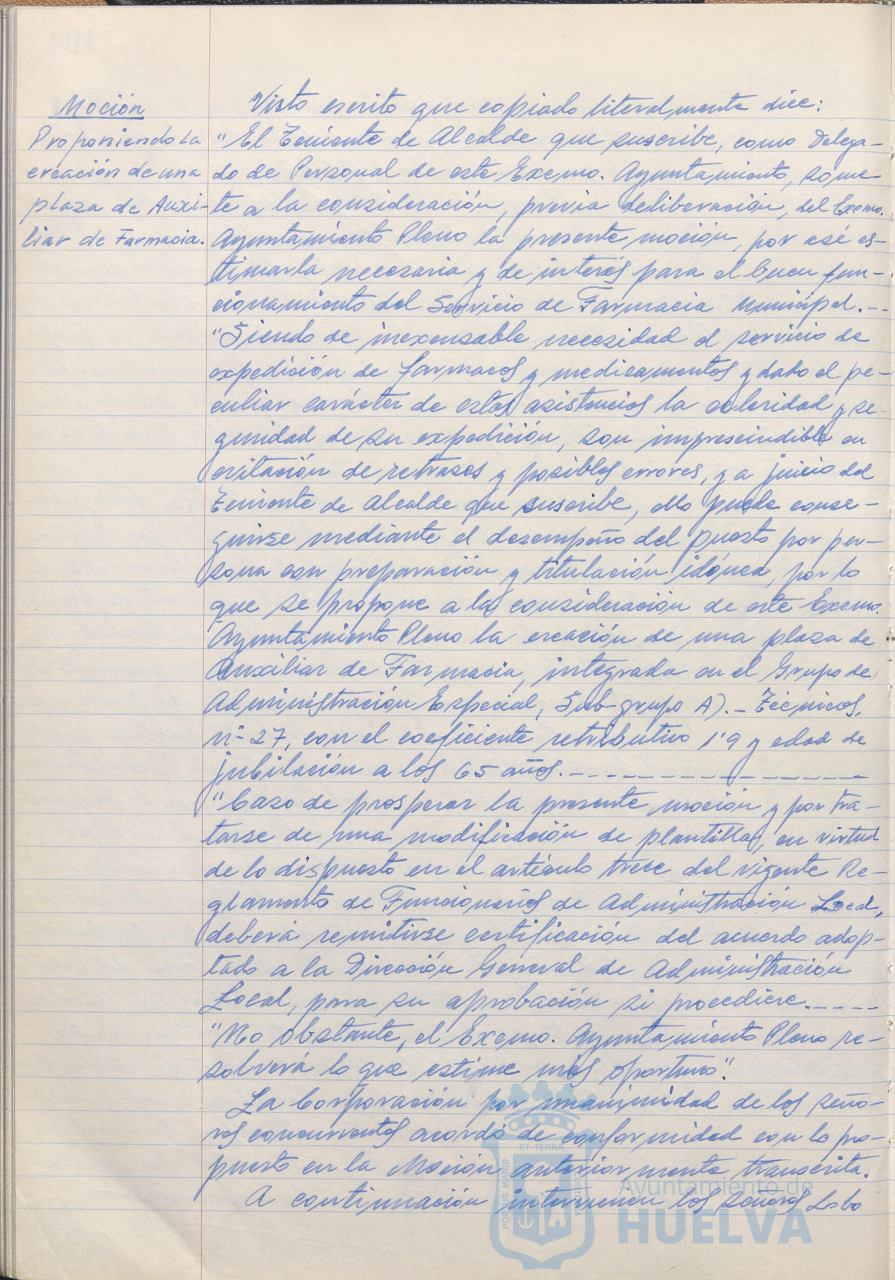 Moción
Proponiendo la
creación de una
plaza de Auxi-
liar de Farmacia.
Visto escrito que copiado literalmente dice:
"El Teniente de Alcalde que suscribe, como Delega-
do de Personal de este Excmo. Ayuntamiento, some-
te a la consideración, previa deliberación, del Excmo.
Ayuntamiento Pleno la presente moción, por asé es-
timarla necesaria y de interés para el buen fun-
cionamiento del Servicio de Farmacia Municipal.--
"Siendo de inexcusable necesidad el servicio de
expedición de farmacos y medicamentos y dado el pe-
culiar carácter de estas asistencias la celeridad y se-
guridad de su expedición, son imprescindible en
evitación de retrasos y posibles errores, y a juicio del
Teniente de Alcalde que suscribe, ello puede conse-
guirse mediante el desempeño del puesto por per-
sona con preparación y titulación idónea, por lo
que se propone a la consideración de este Excmo.
Ayuntamiento Pleno la creación de una plaza de
Auxiliar de Farmacia, integrada en el Grupo de
Administración Especial, Sub-grupo A).- Técnicos,
nº 27, con el coeficiente retributivo 1'9 y edad de
jubilación a los 65 años.----------
"Caso de prosperar la presente moción y por tra-
tarse de una modificación de plantillas, en virtud
de lo dispuesto en el artículo trece del vigente Re-
glamento de Funcionarios de Administración Local,
deberá remitirse certificación del acuerdo adop-
tado a la Dirección General de Administración
Local, para su aprobación si procediere.----
"No obstante, el Excmo. Ayuntamiento Pleno re-
solverá lo que estime más oportuno".
La Corporación por unanimidad de los seño-
res concurrentes acordó de conformidad con lo pro-
puesto en la Moción anteriormente transcrita.
A continuación intervienen los señores Lobo
PORTUS MARIS ET TERRAE CUSTODIA
Ayuntamiento de
HUELVA